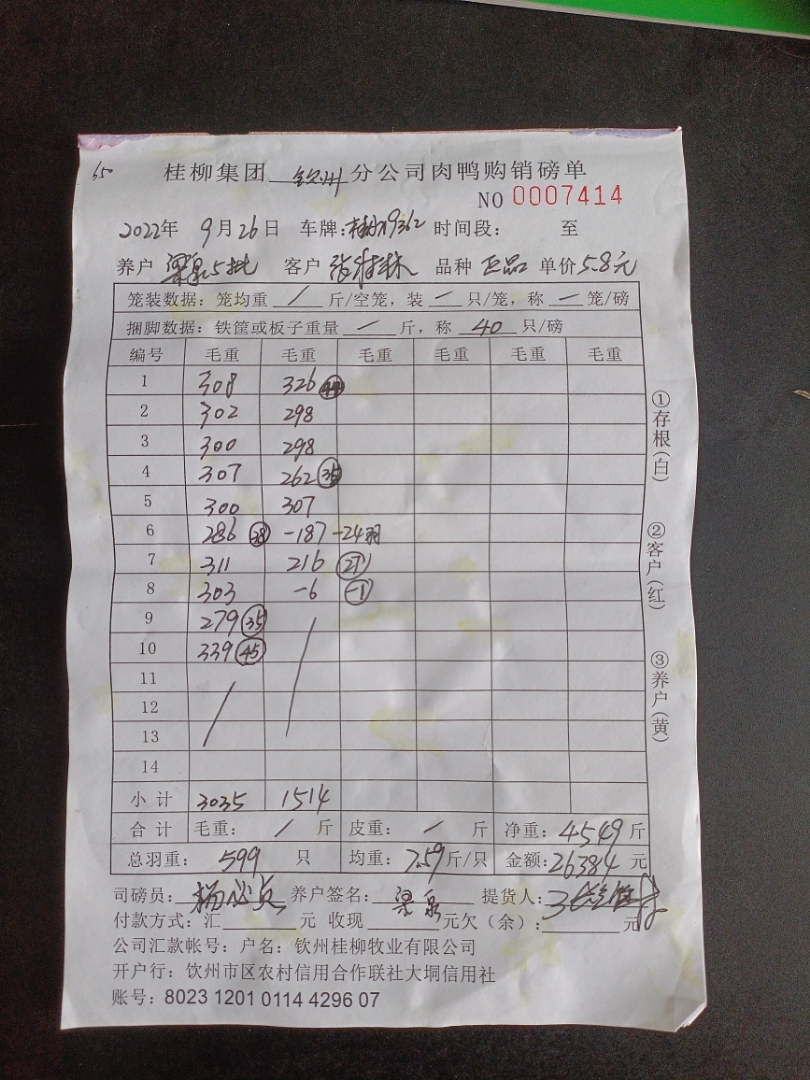 65
桂柳集团 钦州 分公司肉鸭购销磅单
NO 0007414
2022年 9月26日 车牌: 时间段: 至
养户 梁泉5批 客户 张桂林 品种 正品 单价5.8元
笼装数据: 笼均重 / 斤/空笼, 装 一 只/笼, 称 一 笼/磅
捆脚数据: 铁筐或板子重量 一 斤, 称 40 只/磅
编号 毛重 毛重 毛重 毛重 毛重 毛重
1 308 326
2 302 298
3 300 298
4 307 262 (35)
5 300 307
6 286 (38) -187 -24羽
7 311 216
8 303 -6 (-1)
9 279 (35)
10 339 (45)
11
12
13
14
小计 3035 1514
合计 毛重: / 斤 皮重: / 斤 净重: 4549 斤
总羽重: 599 只 均重: 7.59 斤/只 金额: 26384 元
司磅员: 养户签名: 梁泉 提货人:
付款方式: 汇 元 收现 元欠(余): 元
公司汇款帐号: 户名: 钦州桂柳牧业有限公司
开户行: 钦州市区农村信用合作联社大垌信用社
账号: 8023 1201 0114 4296 07
①存根(白)
②客户(红)
③养户(黄)